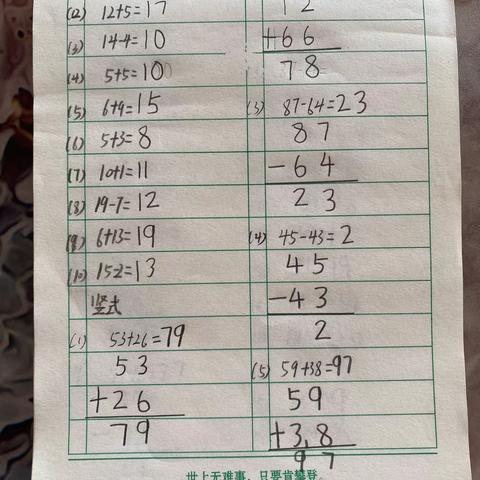 (2) 12+5=17
(3) 14-4=10
(4) 5+5=10
(5) 6+9=15
(6) 5+3=8
(7) 10+1=11
(8) 19-7=12
(9) 6+13=19
(10) 15-2=13
竖式
(1) 53+26=79
53
+26
79
12
+66
78
(3) 87-64=23
87
-64
23
(4) 45-43=2
45
-43
2
(5) 59+38=97
59
+38
97
世上无难事，只要肯攀登。